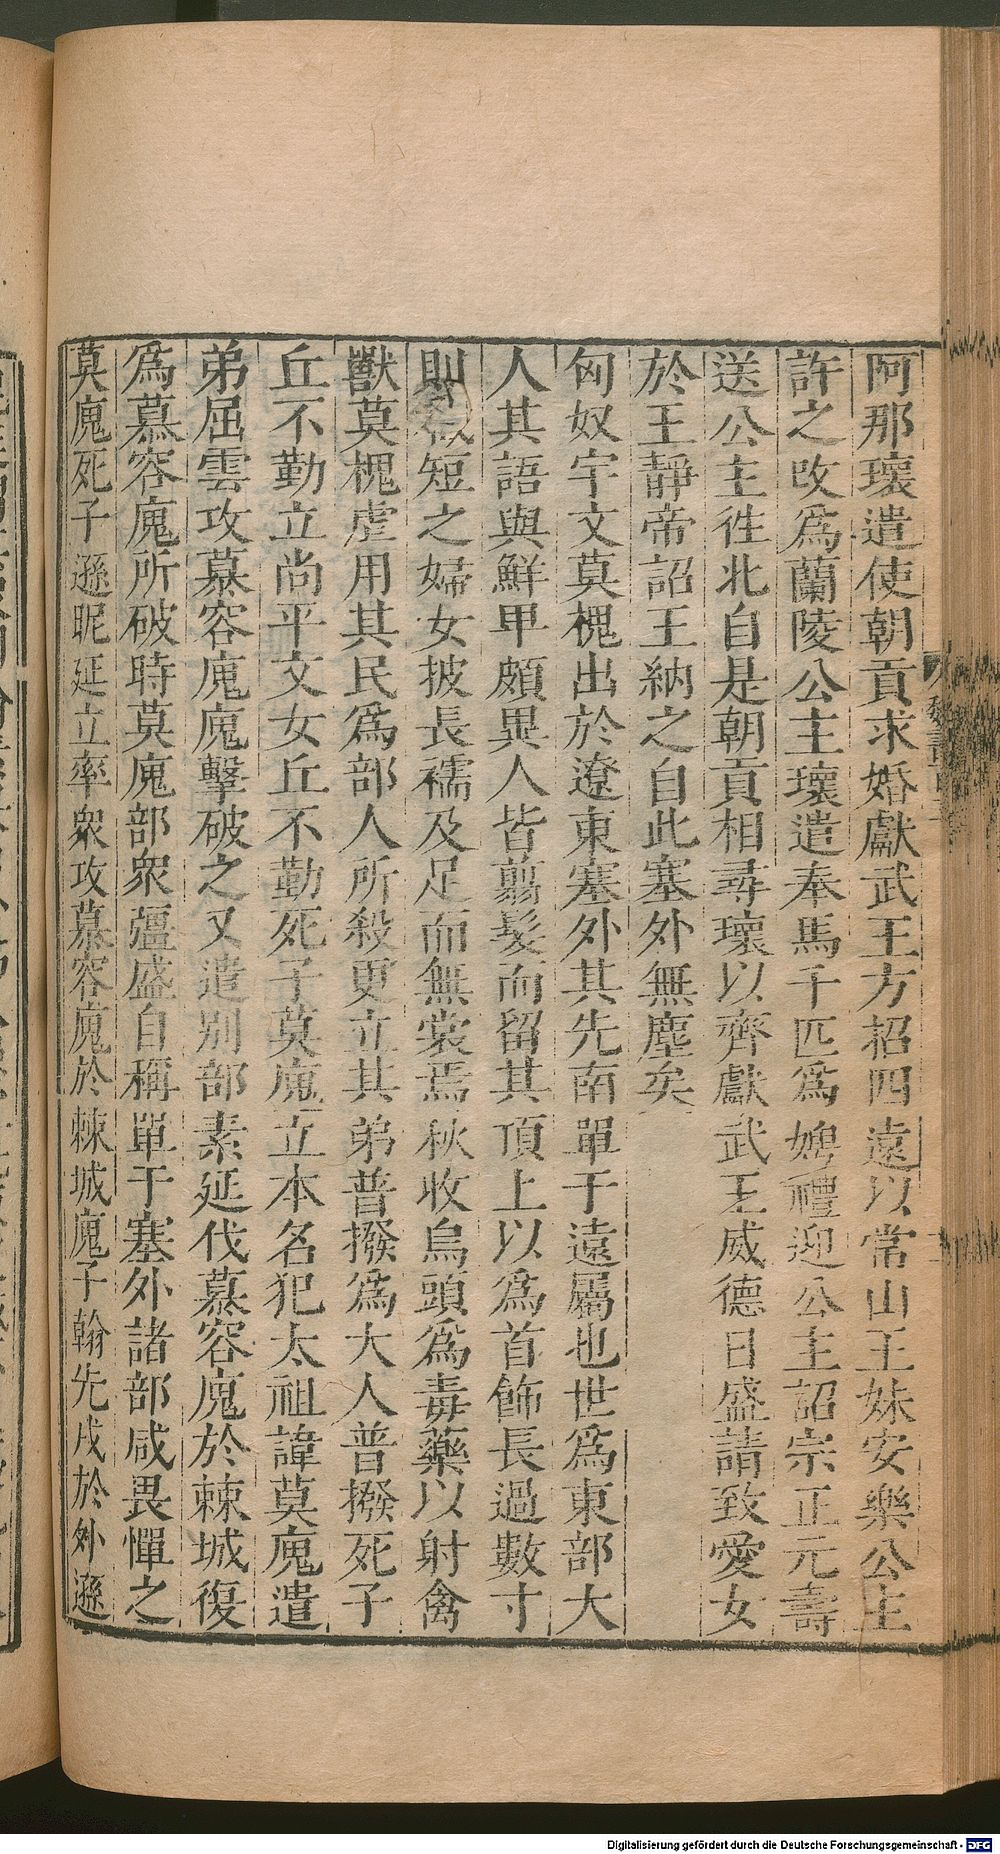 阿那壞遣使朝貢求婚獻武王方招四遠以常山王妹安樂公主
許之改爲蘭陵公主壞遣奉馬千匹爲娉禮迎公主詔宗正元壽
送公主徃北自是朝貢相尋壞以齊獻武王威德日盛請致愛女
於王靜帝詔王納之自此塞外無塵矣
匈奴宇文莫槐出於遼東塞外其先南單于遠屬也世爲東部大
人其語與鮮甲頗異人皆翦髮而留其頂上以爲首飾長過數寸
則截短之婦女披長襦及足而無裳焉秋收烏頭爲毒藥以射禽
獸莫槐虐用其民爲部人所殺更立其弟普撥爲大人普撥死子
丘不勤立尚平文女丘不勤死子莫廆立本名犯太祖諱莫廆遣
弟屈雲攻慕容廆廆擊破之又遣別部素延伐慕容廆於棘城復
爲慕容廆所破時莫廆部衆彊盛自稱單于塞外諸部咸畏憚之
莫廆死子遜昵延立率衆攻慕容廆於棘城廆子翰先戍於外遜
Digitalisierung gefördert durch die Deutsche Forschungsgemeinschaft - DFG